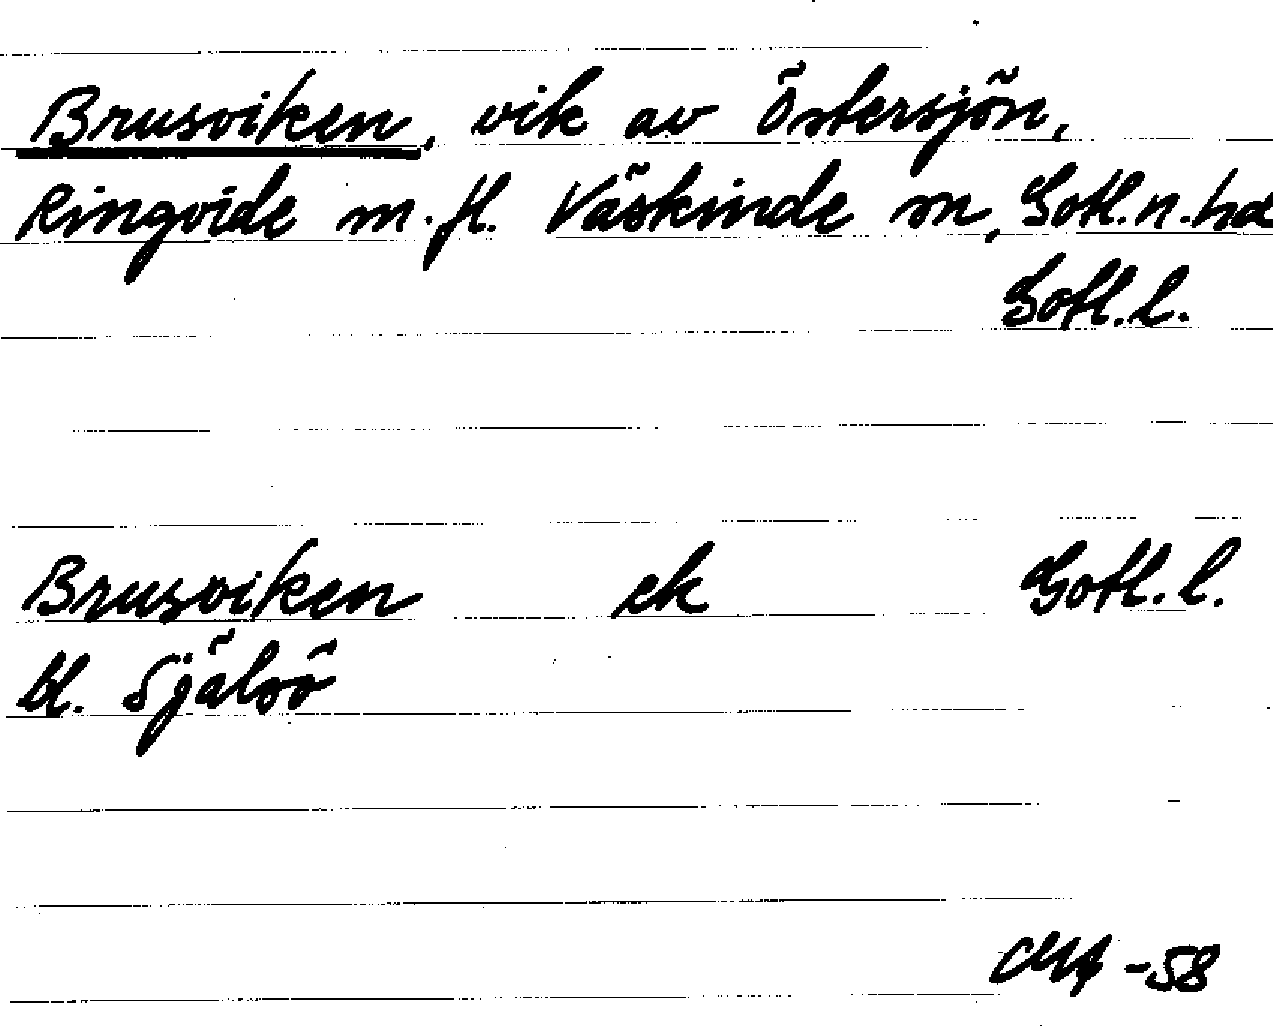 Brusviken, vik av Östersjön,
Ringvide m.fl. Väskinde sn, Gotl. n. hd
Gotl. l.
Brusviken ek Gotl. l.
bl. Själsö
-58